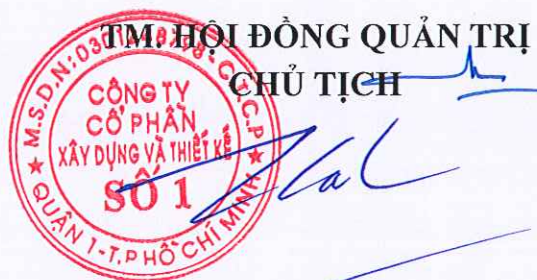 TM. HỘI ĐỒNG QUẢN TRỊ
CHỦ TỊCH
CÔNG TY
CỔ PHẦN
XÂY DỰNG VÀ THIẾT KẾ
SỐ 1
QUẬN 1-T.P HỒ CHÍ MINH